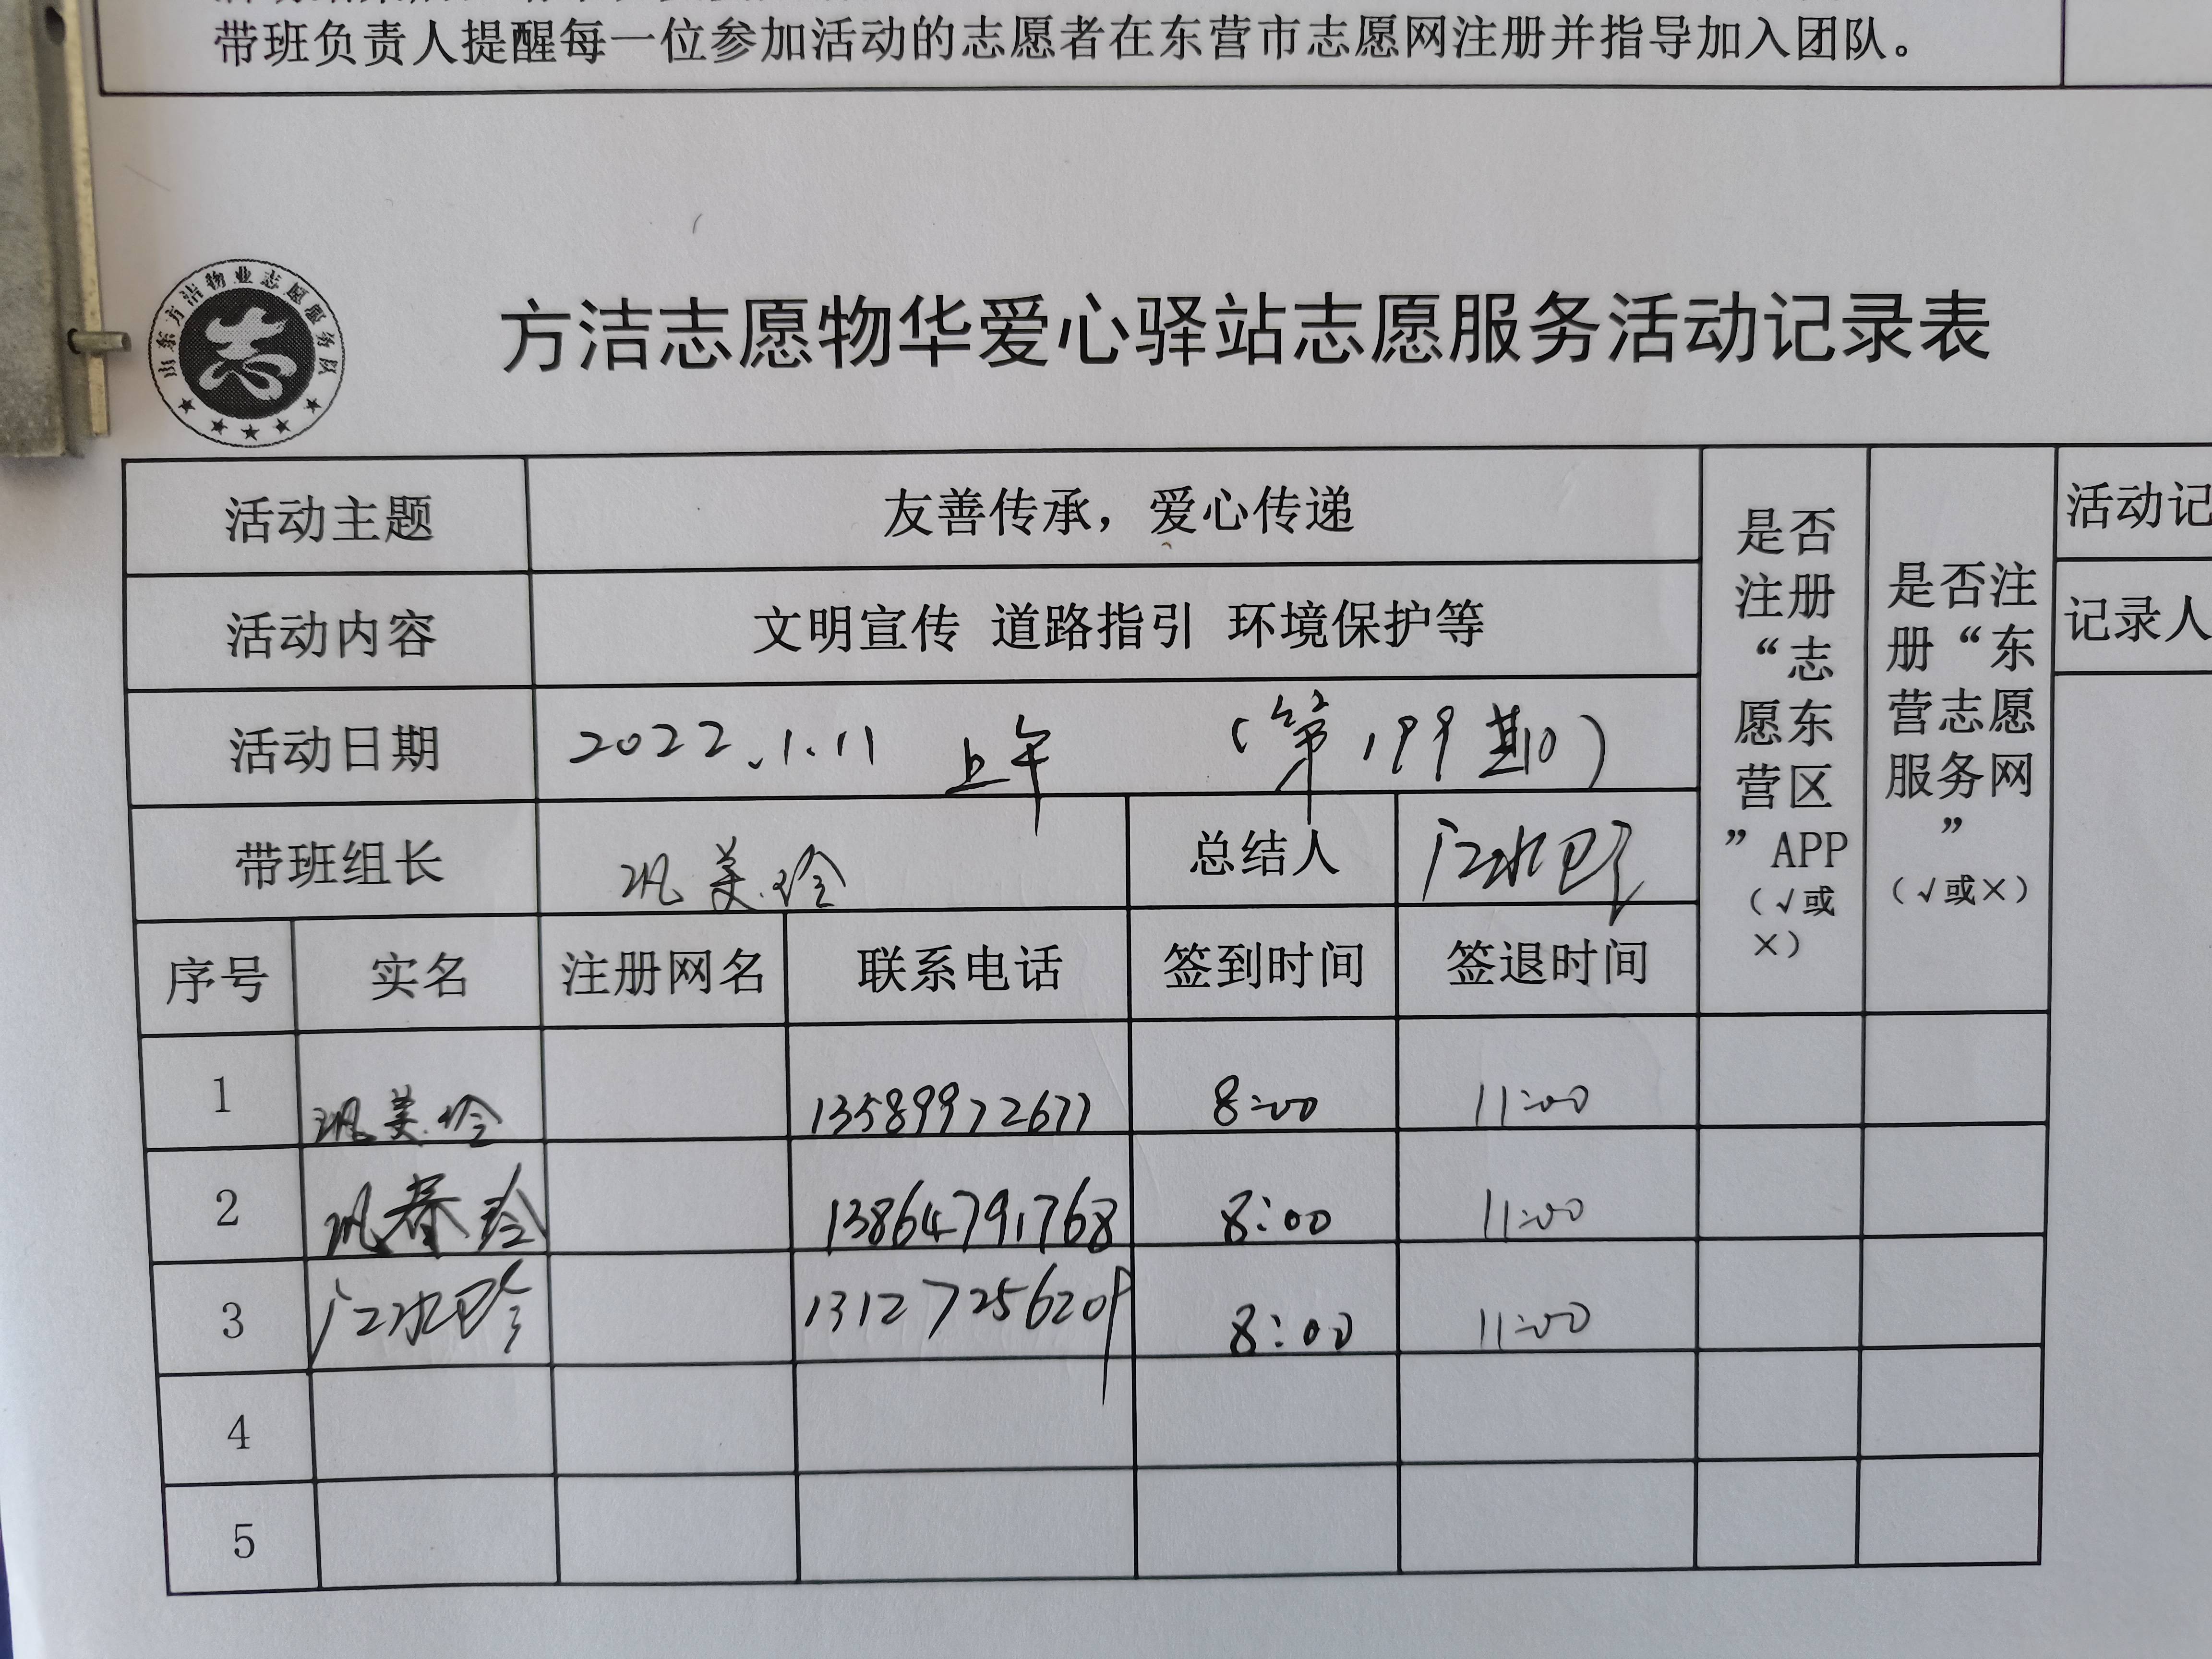 带班负责人提醒每一位参加活动的志愿者在东营市志愿网注册并指导加入团队。
山东方洁物业志愿服务队
志
方洁志愿物华爱心驿站志愿服务活动记录表
活动主题 友善传承，爱心传递
是否注册“志愿东营区”APP（√或×）
是否注册“东营志愿服务网”（√或×）
活动记
活动内容 文明宣传 道路指引 环境保护等
记录人
活动日期 2022.1.11 上午 （第199期）
带班组长 巩美玲 总结人
序号 实名 注册网名 联系电话 签到时间 签退时间
1 巩美玲 13589972677 8:00 11:00
2 巩春玲 13864791768 8:00 11:00
3 13127725620 8:00 11:00
4
5